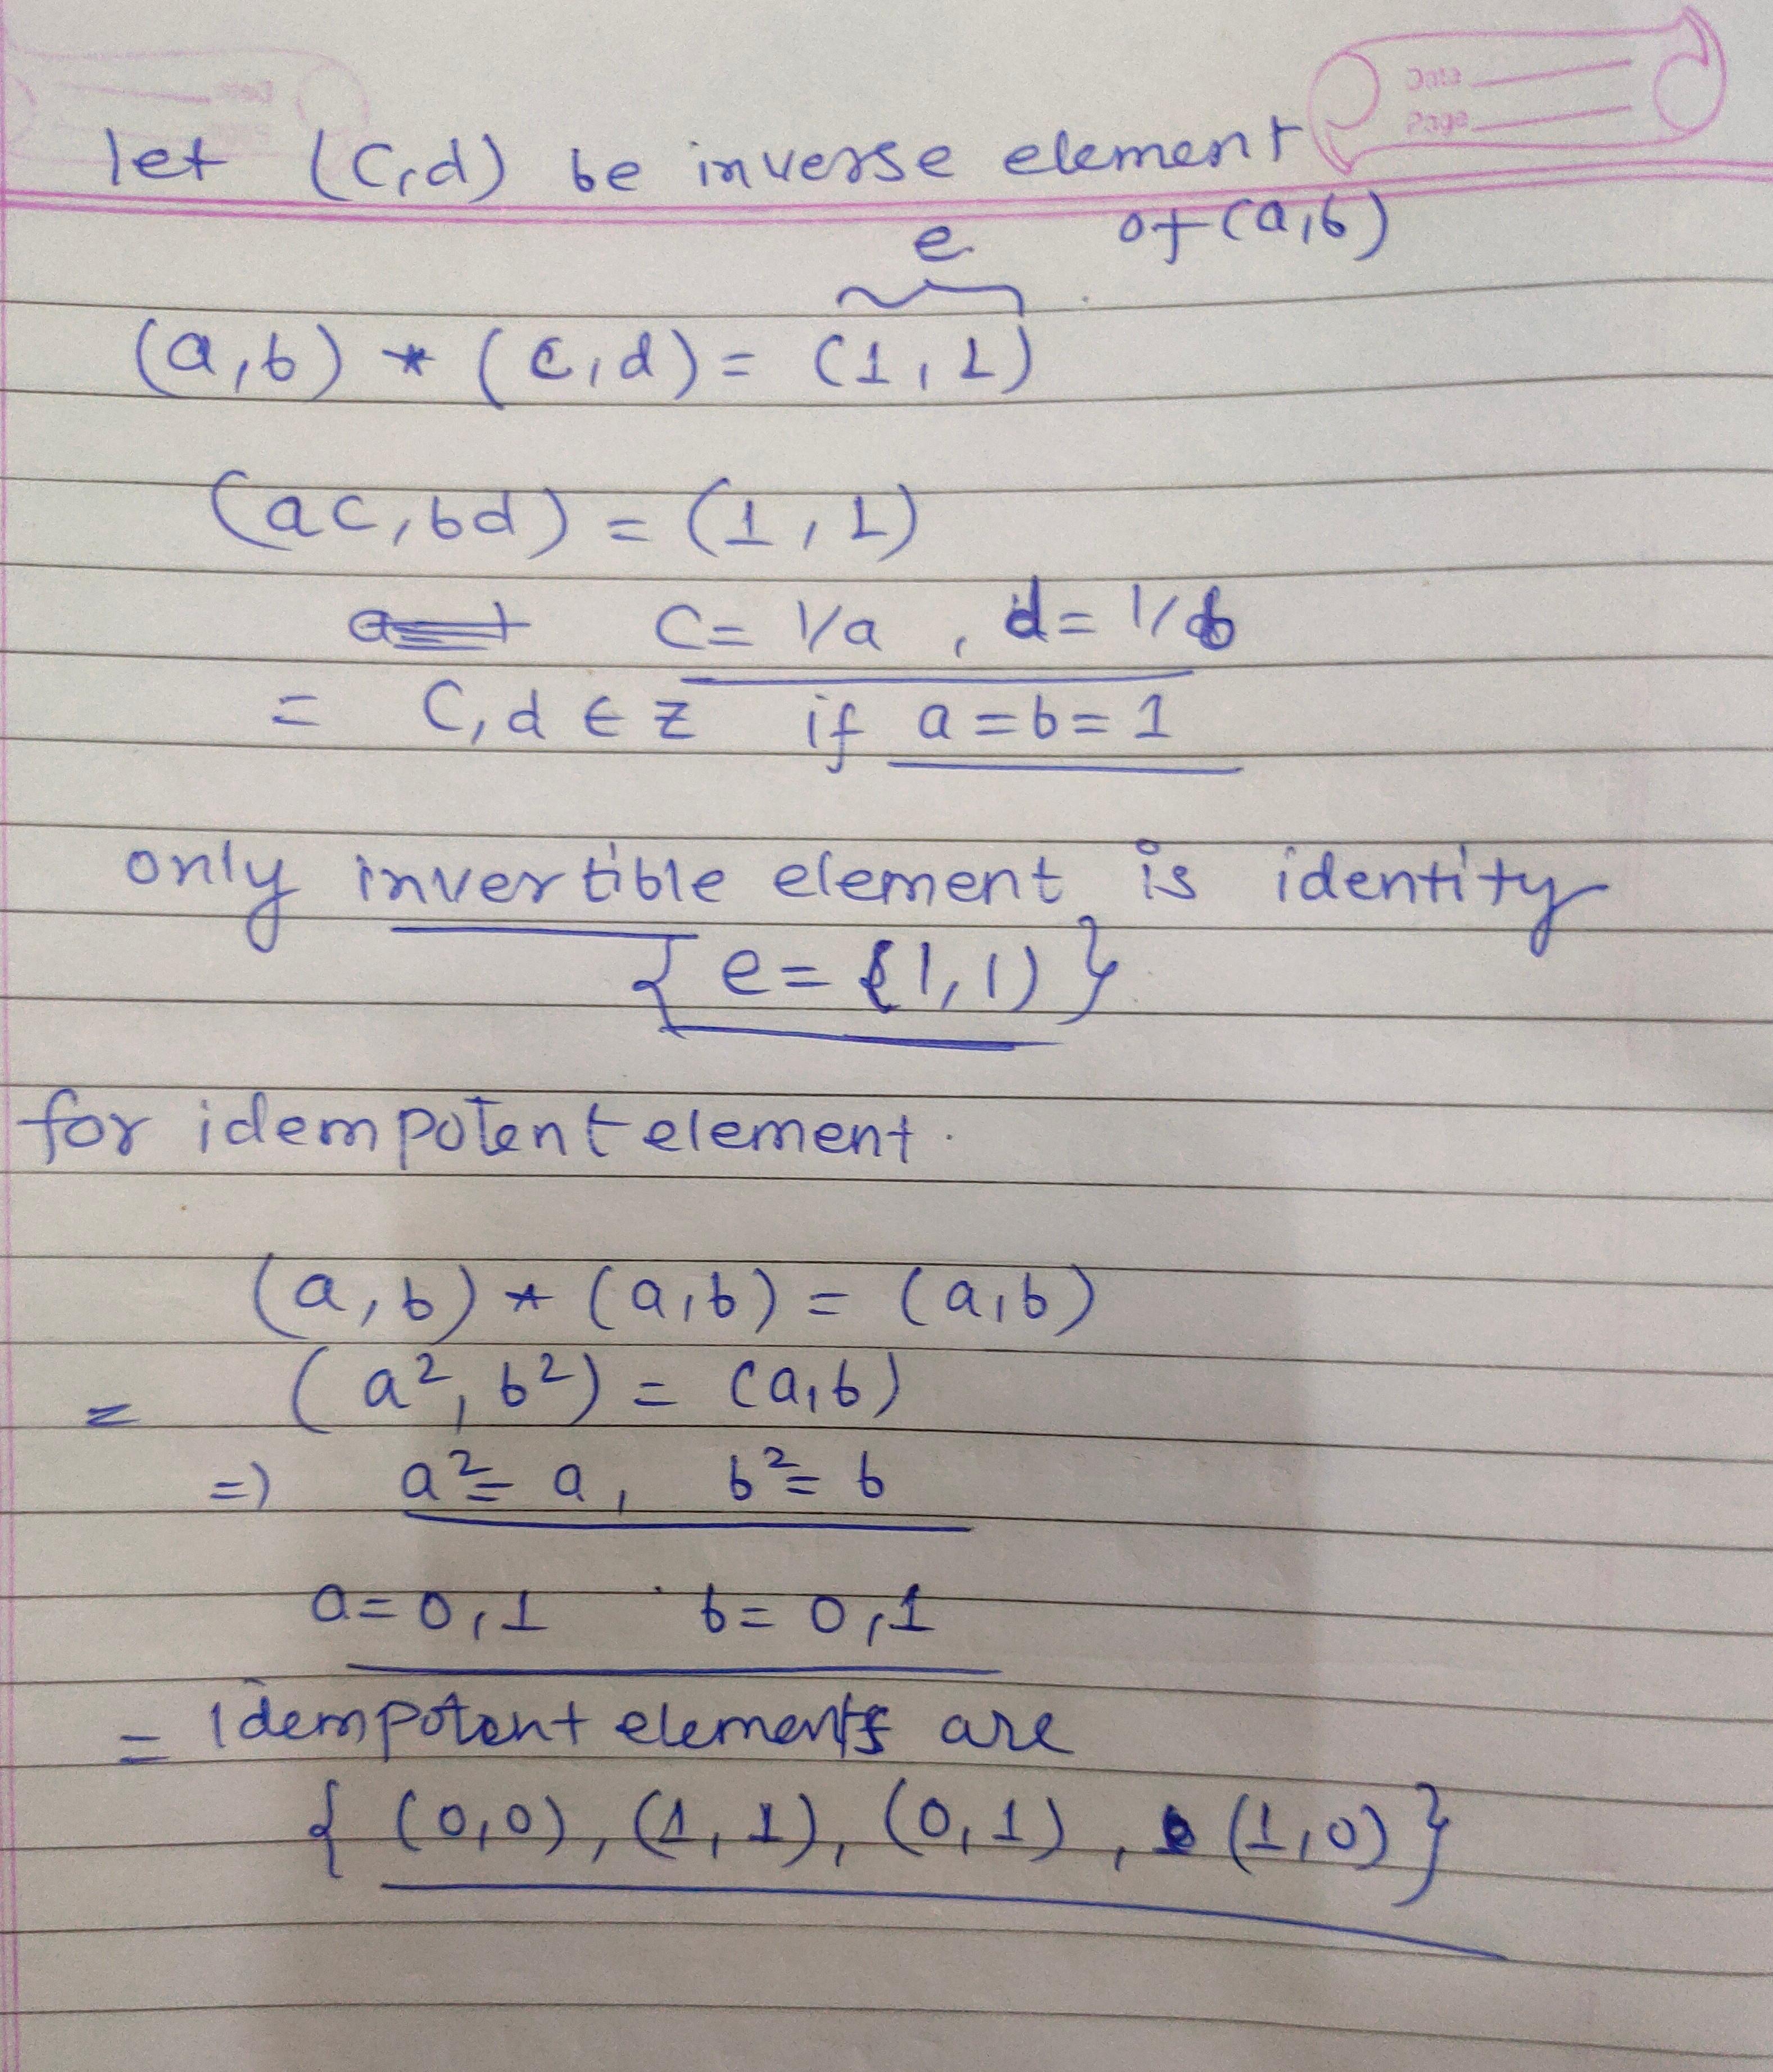 Date
Page
let (c,d) be inverse element
of (a,b)
e
(a,b) * (c,d) = (1,1)
(ac,bd) = (1,1)
c = 1/a , d = 1/b
= c,d ∈ z if a = b = 1
only invertible element is identity
{ e = (1,1) }
for idempotent element.
(a,b) * (a,b) = (a,b)
= (a², b²) = (a,b)
=) a² = a, b² = b
a = 0,1 b = 0,1
= idempotent elements are
{ (0,0), (1,1), (0,1), (1,0) }